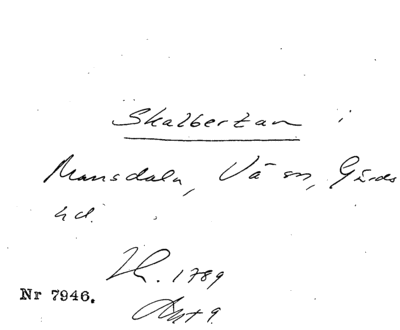 Skalbertan i
Mansdala, Vä sn, Gärds
hd.
Lh. 1789
Nr 7946. Akt 9